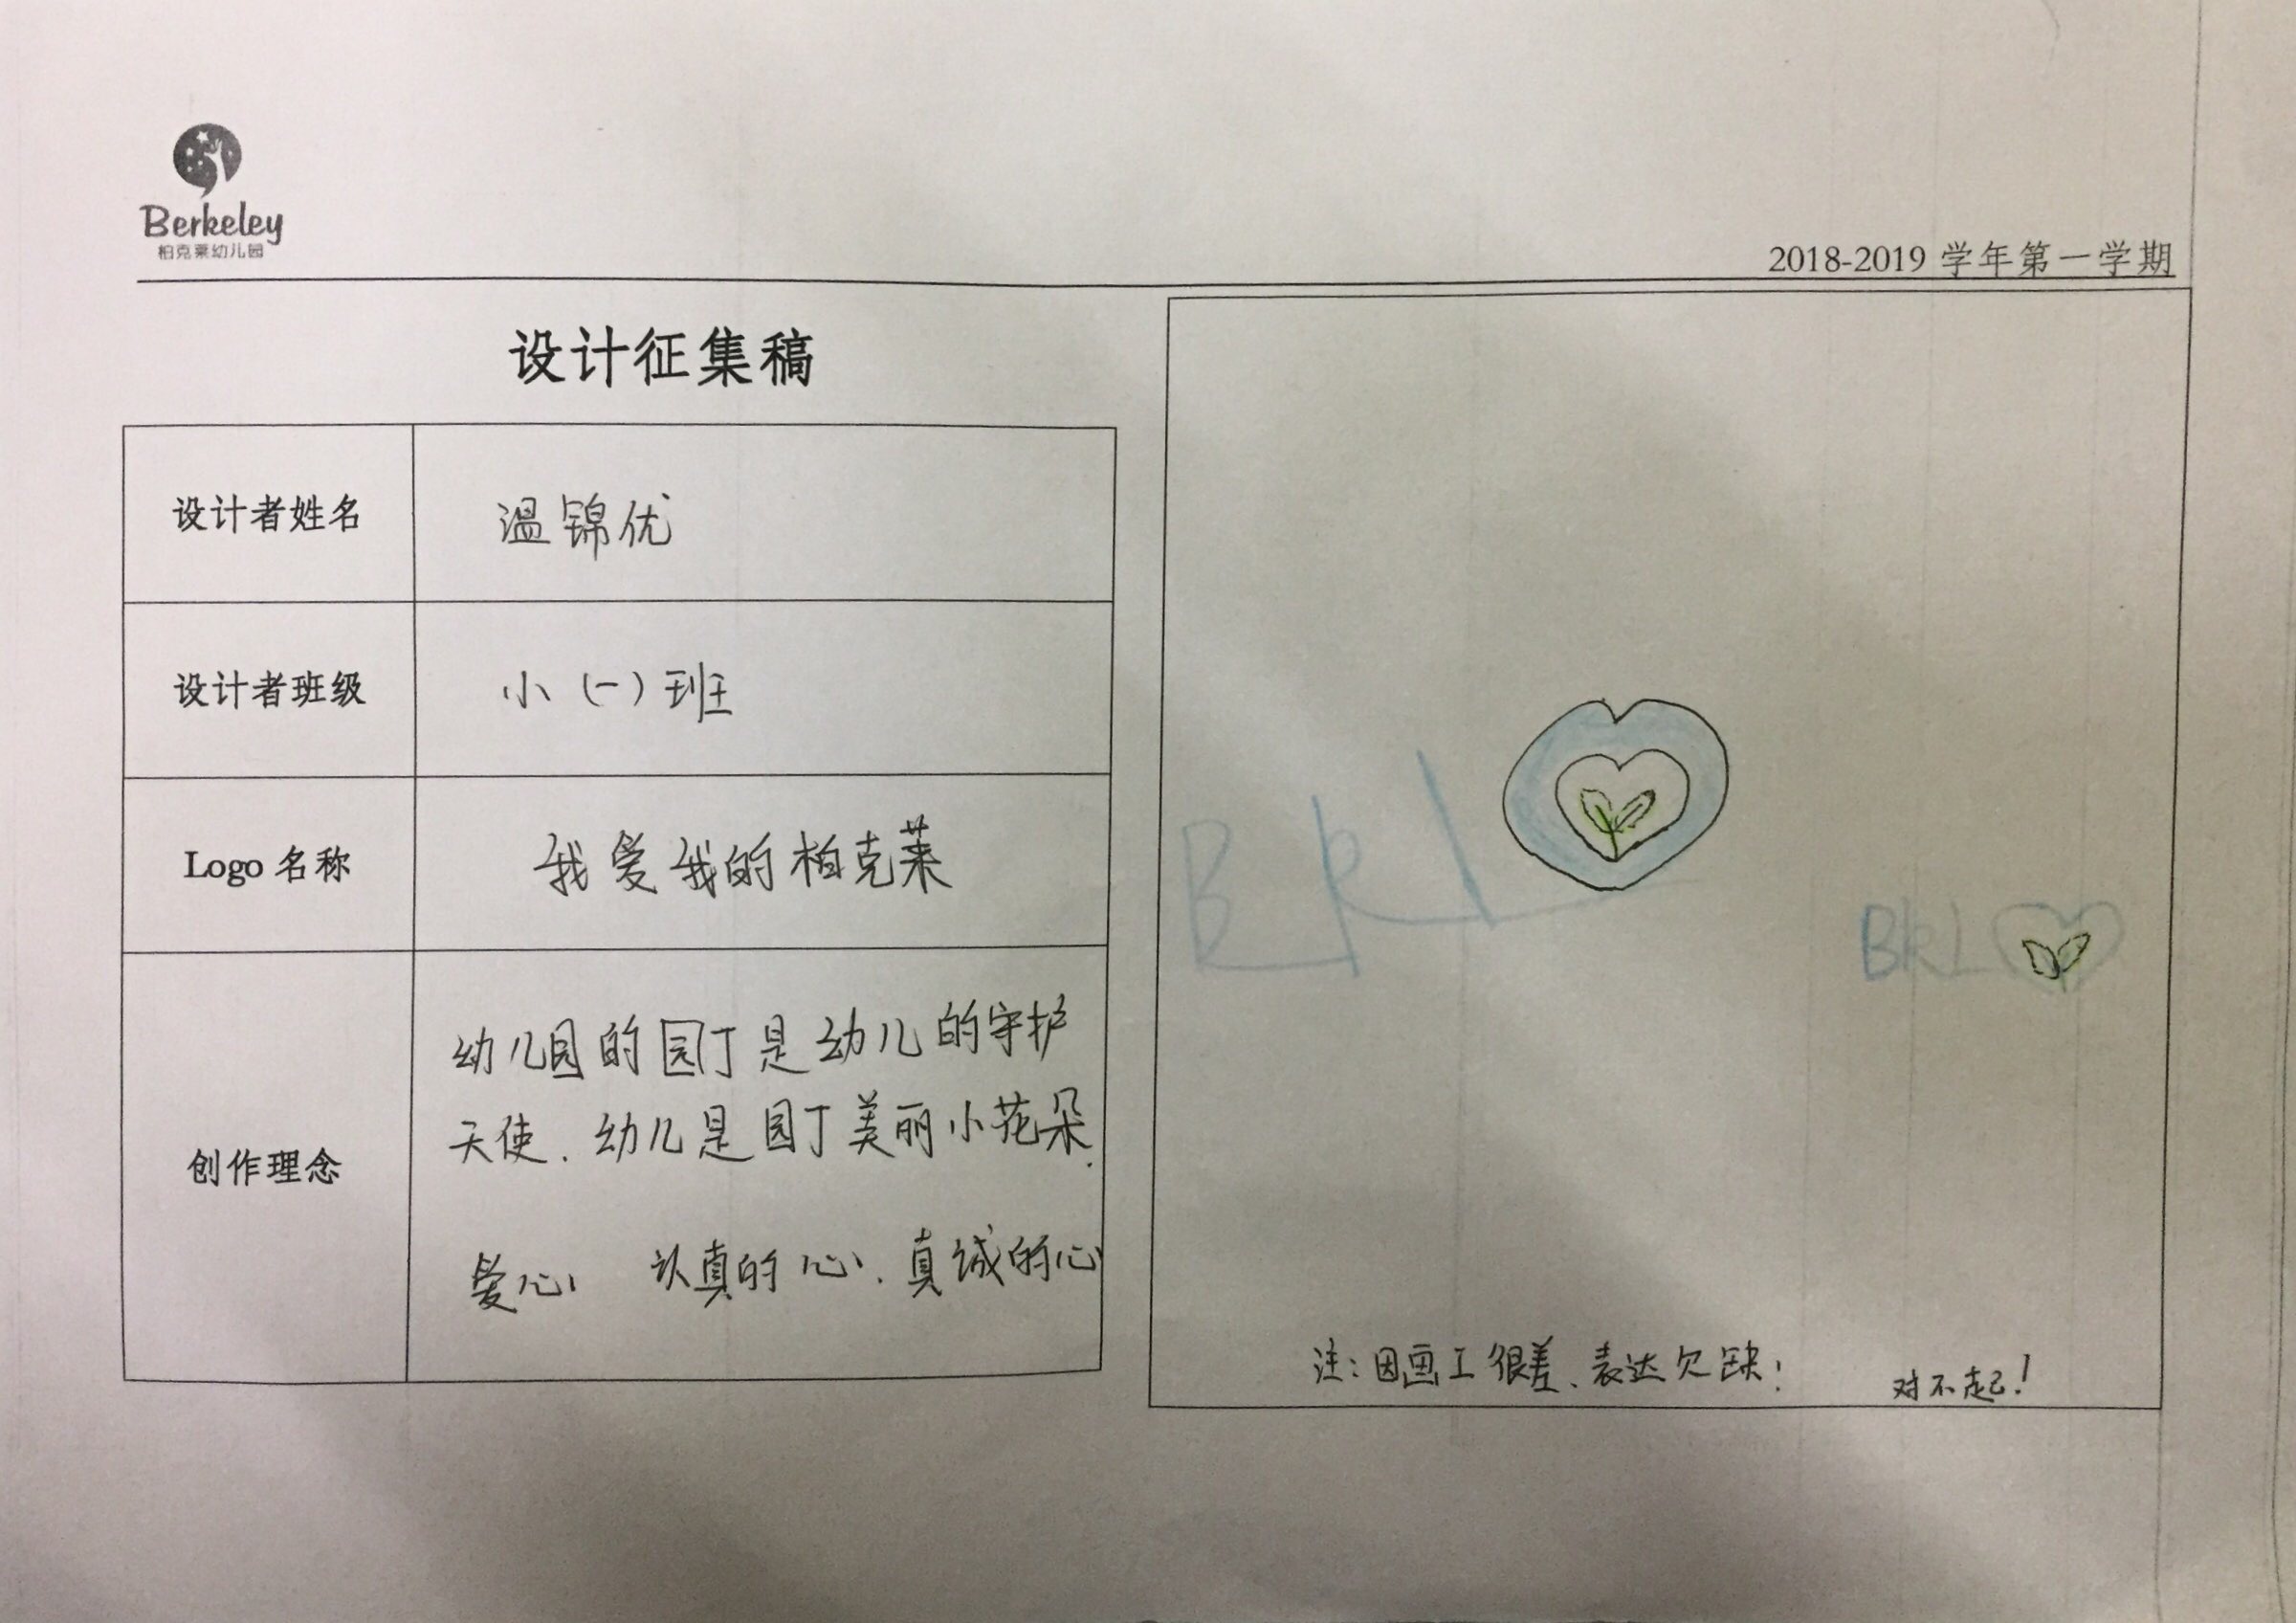 Berkeley
柏克莱幼儿园
2018-2019 学年第一学期
设计征集稿
设计者姓名
温锦优
设计者班级
小（一）班
Logo 名称
我爱我的柏克莱
创作理念
幼儿园的园丁是幼儿的守护
天使.幼儿是园丁美丽小花朵.
爱心 认真的心.真诚的心
BKL
BKL
注：因画工很差、表达欠缺！
对不起！